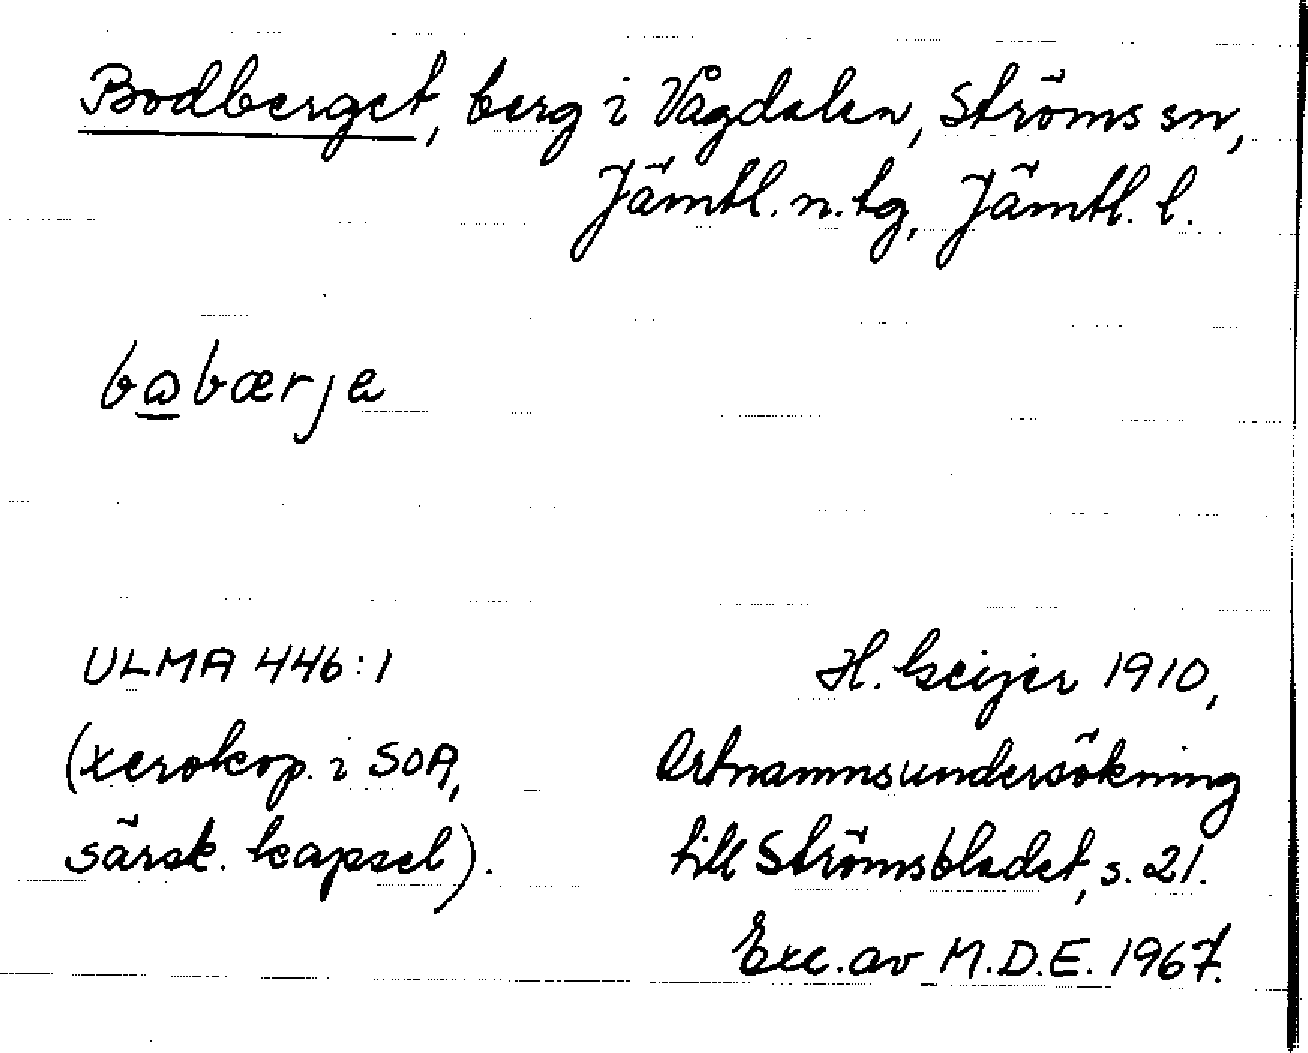 Bodberget, berg i Vågdalen, Ströms sn,
Jämtl. n. tg, Jämtl. l.
ULMA 446:1
(xerokop. i SOA,
särsk. kapsel).
H. Geijer 1910,
Ortnamnsundersökning
till Strömsbladet, s. 21.
Exc. av M.D.E. 1967.